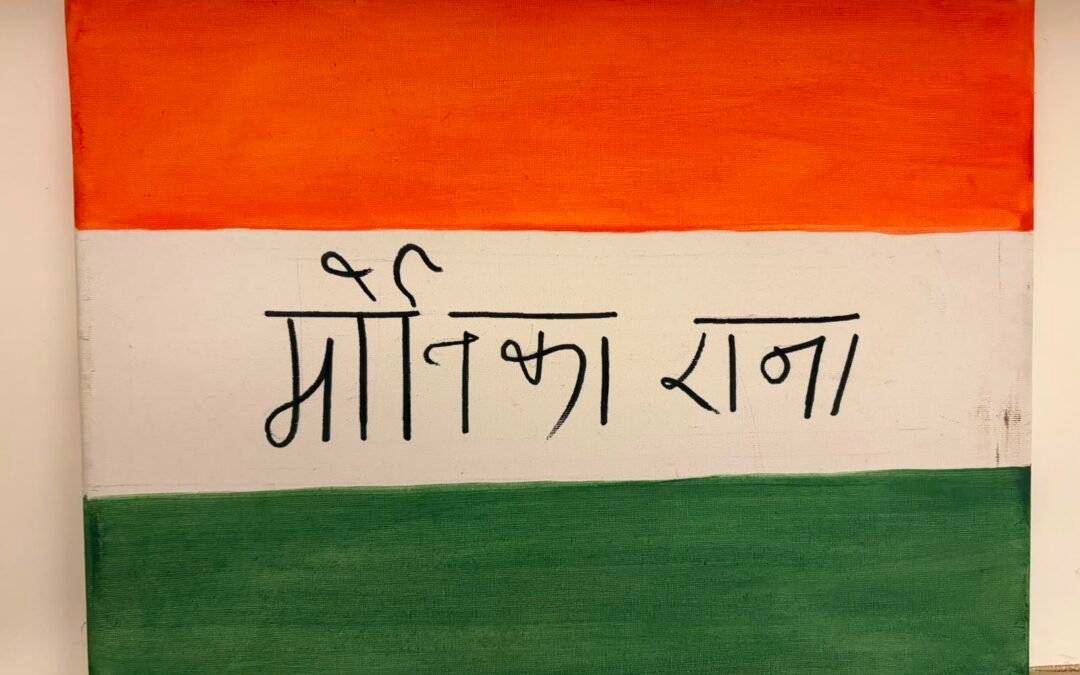 मोनिका राना